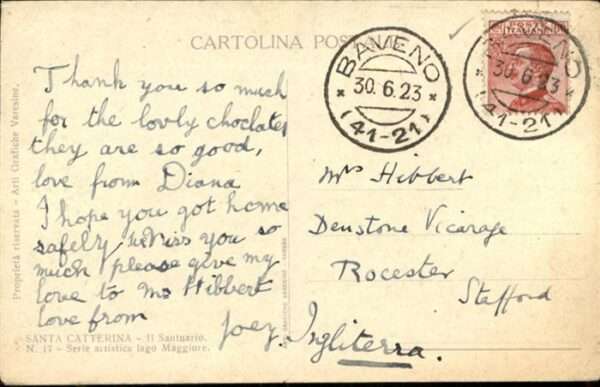 CARTOLINA POSTALE
BAVENO
30.6.23
(41-21)
BAVENO
30.6.23
(41-21)
Thank you so much
for the lovly choclates
they are so good,
love from Diana
I hope you got home
safelry we Miss you so
much please give my
love to Mr Hibbert
love from
Joey.
Mrs Hibbert
Denstone Vicarage
Rocester
Stafford
Ingliterra.
SANTA CATTERINA - Il Santuario.
N. 17 - Serie artistica lago Maggiore.
Proprietà riservata - Arti Grafiche Varesine.